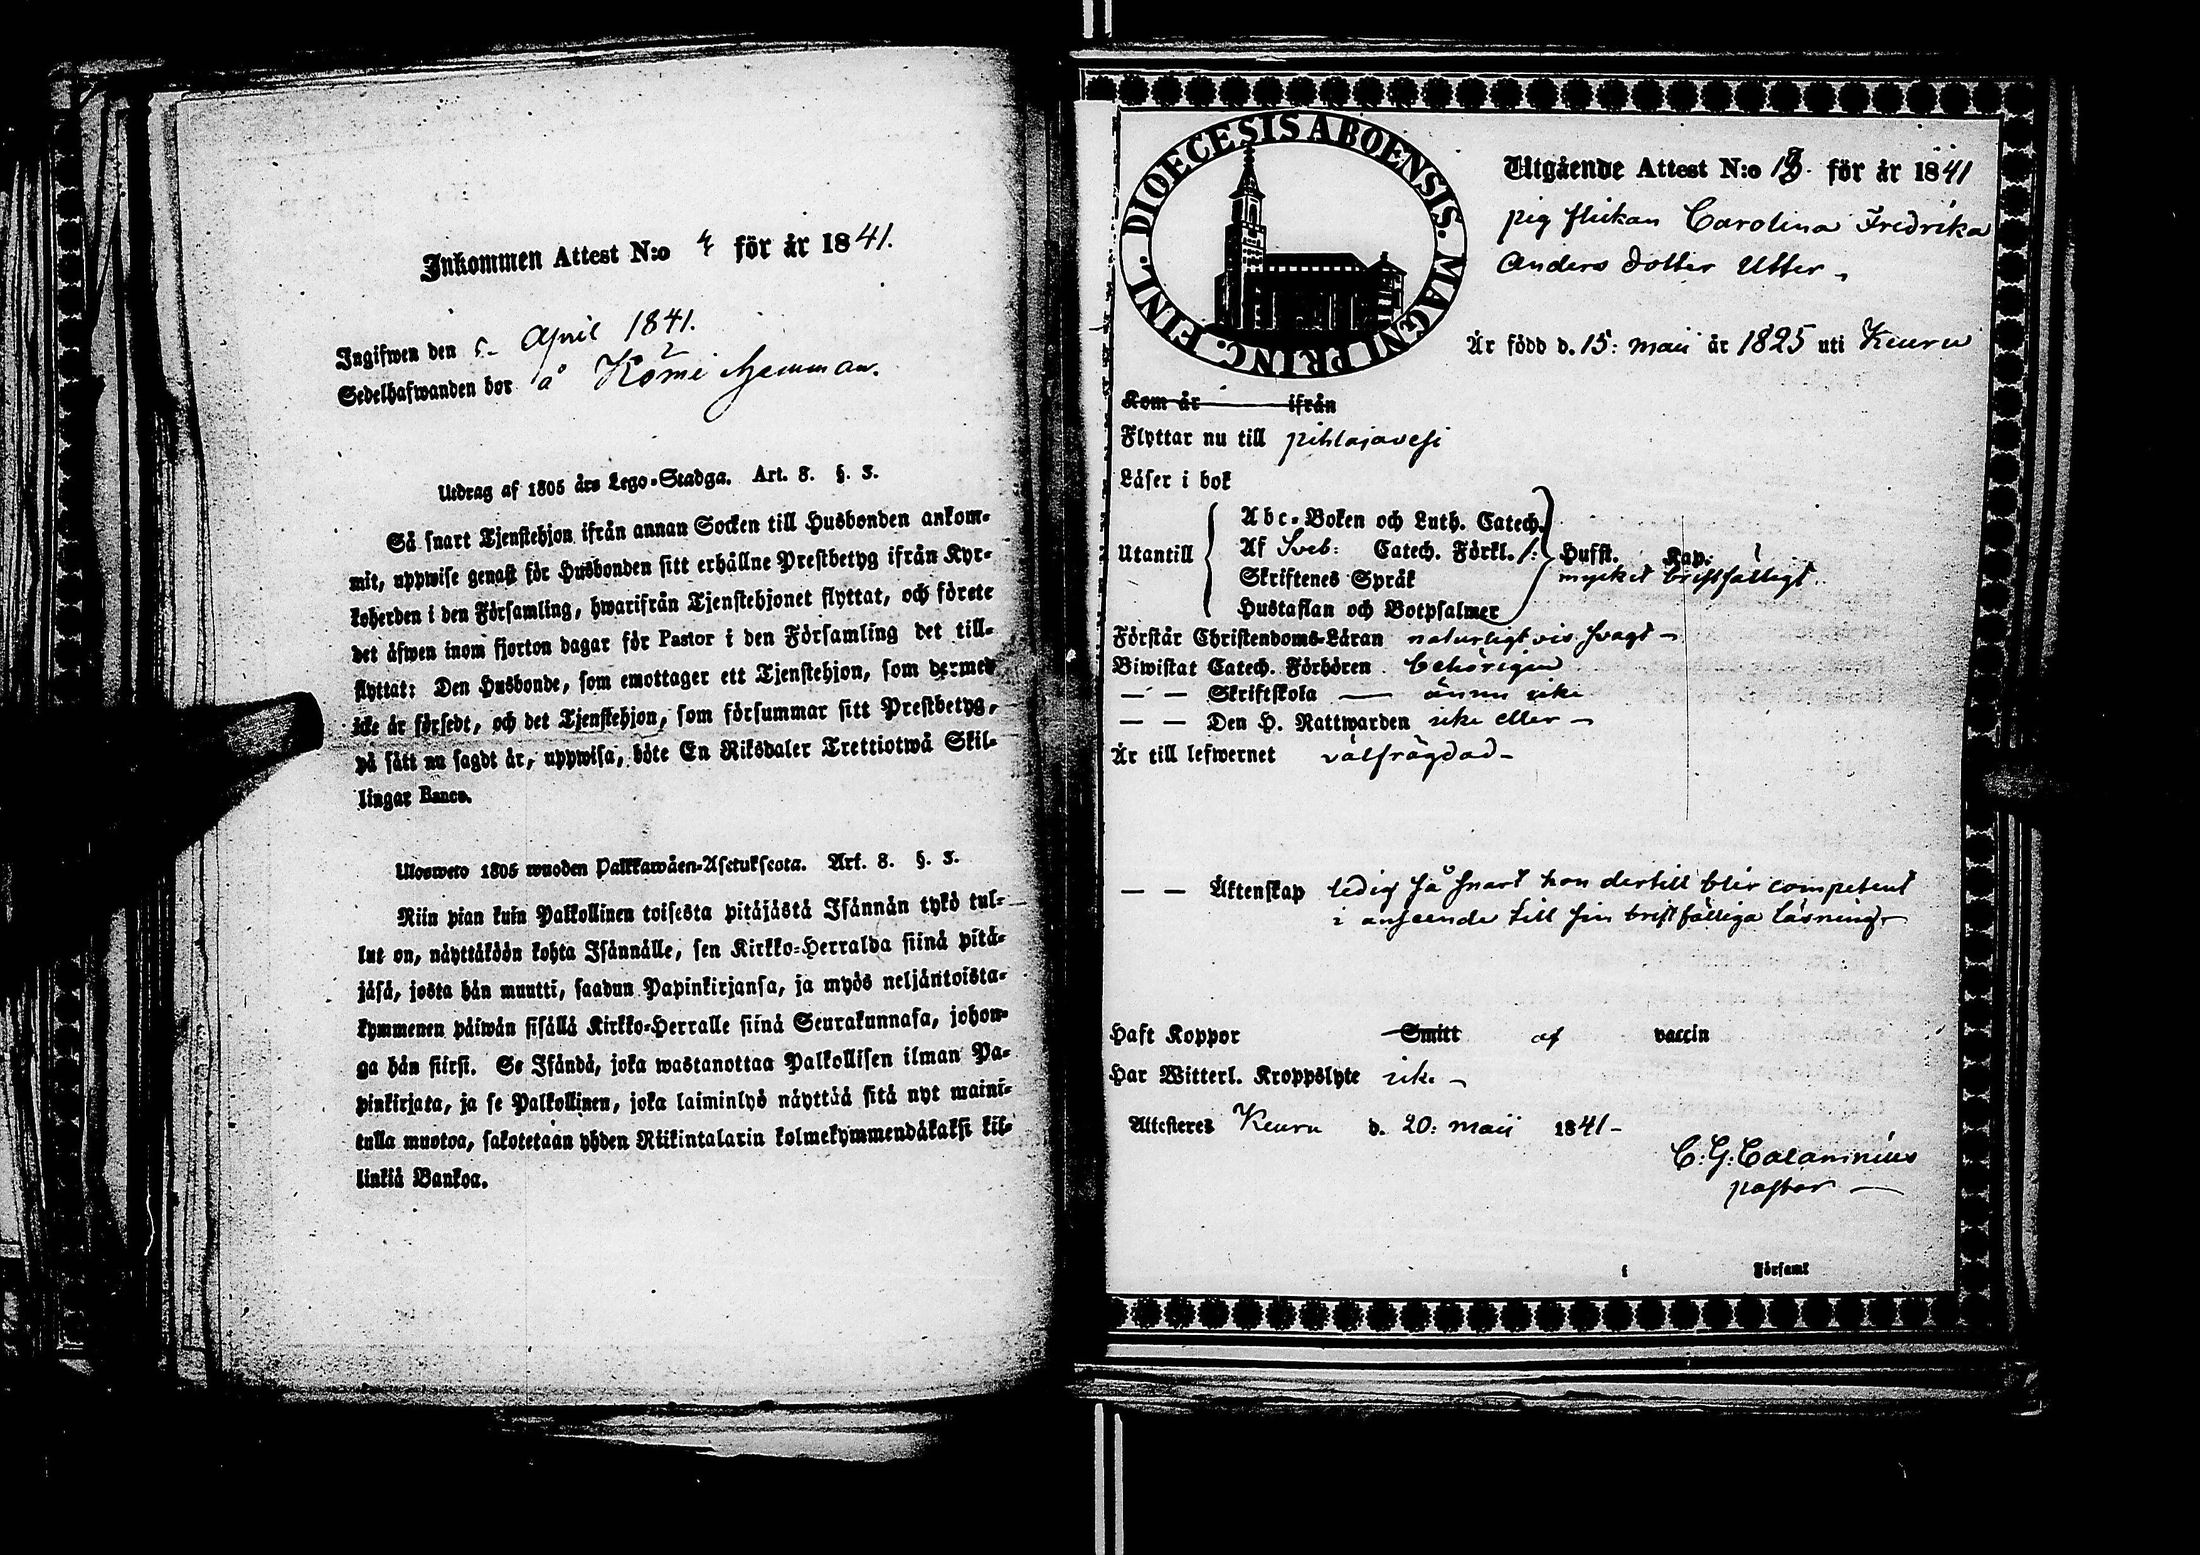 Inkommen Attest N:o 4 för år 1841.
Ingifwen den 5 April 1841.
Sedelhafwanden bor å Kömi hemman.
Utdrag af 1805 års Lego-Stadga. Art. 8. §. 3.
Så snart Tjenstehjon ifrån annan Socken till Husbonden ankom-
mit, uppwise genast för Husbonden sitt erhållne Prestbetyg ifrån Kyr-
koherden i den Församling, hwarifrån Tjenstehjonet flyttat, och förete
det äfwen inom fjorton dagar för Pastor i den Församling det till-
flyttat: Den Husbonde, som emottager ett Tjenstehjon, som dermed
icke är försedt, och det Tjenstehjon, som försummar sitt Prestbetyg,
på sätt nu sagdt är, uppwisa, böte En Riksdaler Trettiotwå Skil-
lingar Banco.
Ulosweto 1805 wuoden Palkkawäen-Asetuksesta. Art. 8. §. 3.
Niin pian kuin Palkollinen toisesta pitäjästä Isännän tykö tul-
lut on, näyttäköön kohta Isännälle, sen Kirkko-Herralda siinä pitä-
jäsä, josta hän muutti, saadun Papinkirjansa, ja myös neljäntoista-
kymmenen päiwän sisällä Kirkko-Herralle siinä Seurakunnasa, johon-
ga hän siirsi. Se Isändä, joka wastanottaa Palkollisen ilman Pa-
pinkirjata, ja se Palkollinen, joka laiminlyö näyttää sitä nyt maini-
tulla muotoa, sakotetaan yhden Riikintalarin kolmekymmendäkaksi kil-
linkiä Bankoa.
DIOECESIS ABOENSIS. MAGNI PRINC. FINL.
Utgående Attest N:o 13. för år 1841
pig flickan Carolina Fredrika
Anders dotter Utter
Är född d. 15: maii år 1825 uti Keuru
Kom år ifrån
Flyttar nu till pihlajavesi
Läser i bok
Utantill
Abc-Boken och Luth. Catech.
Af Sveb: Catech. Förkl. Hufst. Kap:
Skriftenes Språk mycket bristfälligt.
Hustaflan och Botpsalmer
Förstår Christendoms-Läran naturligtvis svagt
Biwistat Catech. Förhören behörigen
— — Skriftskola — ännu icke
— — Den H. Nattwarden icke eller
Är till lefwernet välfrägdad
— — Äktenskap ledig så snart hon dertill blir competent
i anseende till sin bristfälliga läsning
Haft Koppor Smitt af vaccin
Har Witterl. Kroppslyte icke
Attesteres Keuru d. 20: maii 1841
C: G: Calamnius
pastor
i Församl